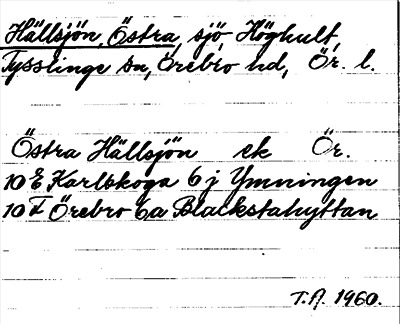 Hällsjön, Östra, sjö Höghult,
Tysslinge sn, Örebro hd, Ör. l.
Östra Hällsjön ek Ör.
10 E Karlskoga 6 j Ymningen
10 F Örebro 6a Blackstahyttan
T.A. 1960.